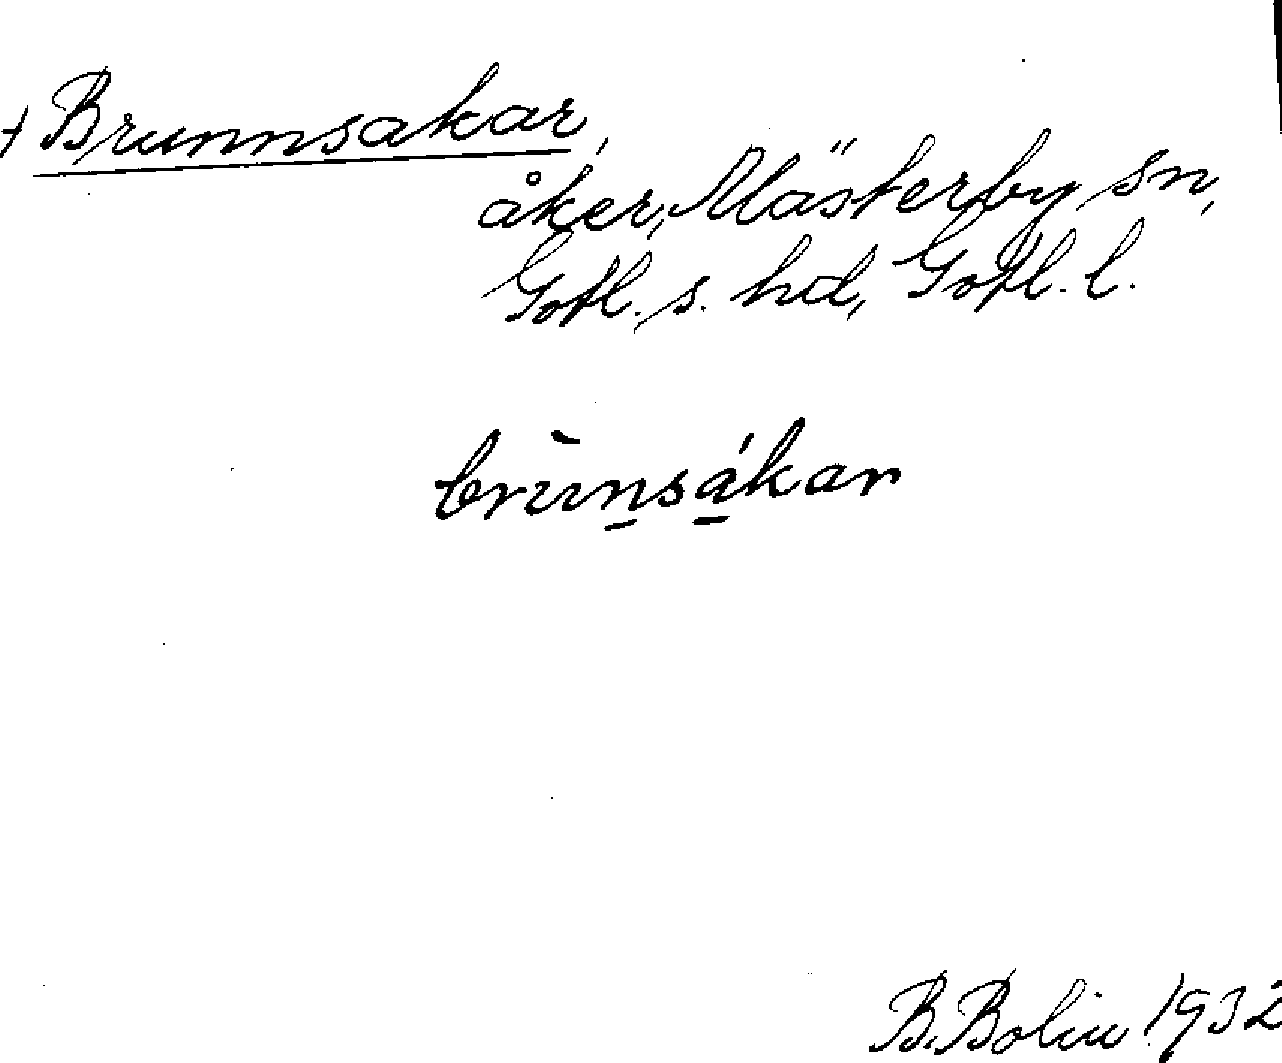 + Brunnsakar,
åker, Mästerby sn,
Gotl. s. hd, Gotl. l.
brùn̲sá̲kar
B. Bolin 1932